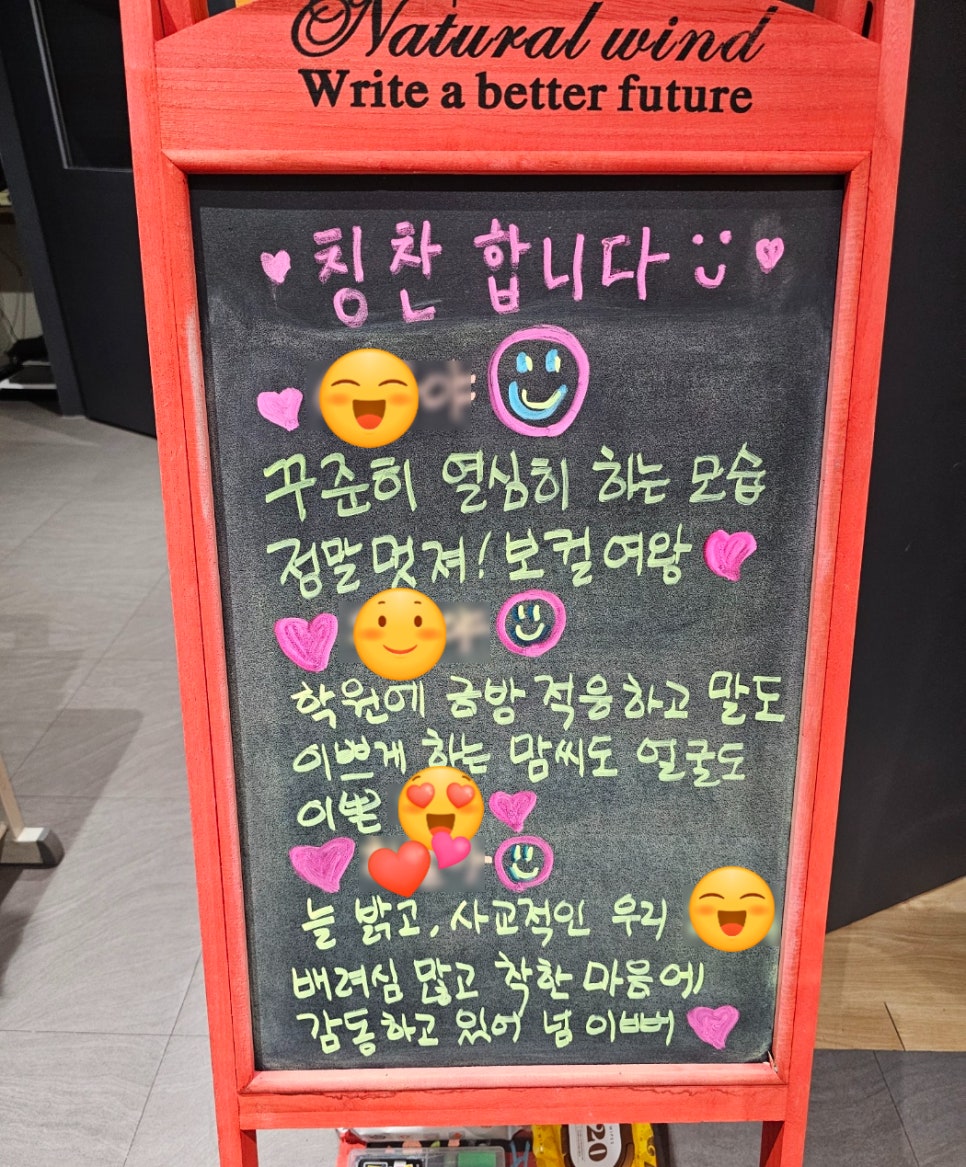 Natural wind
Write a better future
칭찬 합니다
야
꾸준히 열심히 하는 모습
정말 멋져! 보컬여왕
학원에 금방 적응하고 말도
이쁘게 하는 맘씨도 얼굴도
이쁜
늘 밝고, 사교적인 우리
배려심 많고 착한 마음에
감동하고 있어 넘 이뻐
20